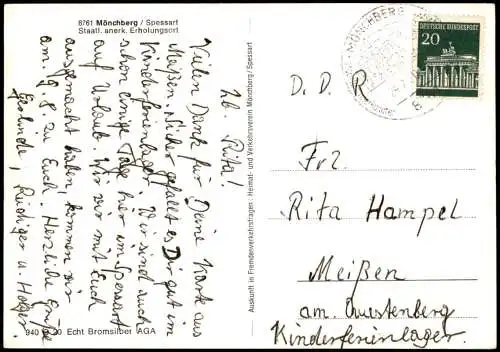 8761 Mönchberg / Spessart
Staatl. anerk. Erholungsort
Lb. Rita!
Vielen Dank für Deine Karte aus
Meißen. Sicher gefällt es Dir gut im
Kinderferienlager. Wir sind auch
schon einige Tage hier im Spessart
auf Urlaub. Wie wir mit Euch
ausgemacht haben, kommen wir
am 9. 8. zu Euch. Herzliche Grüße
Gerlinde, Rüdiger u. Holger
940 20 Echt Bromsilber AGA
Auskunft in Fremdenverkehrsfragen: Heimat- und Verkehrsverein Mönchberg/Spessart
MÖNCHBERG
DEUTSCHE BUNDESPOST
20
D. D. R
Frl.
Rita Hampel
Meißen
am Questenberg
Kinderferienlager.